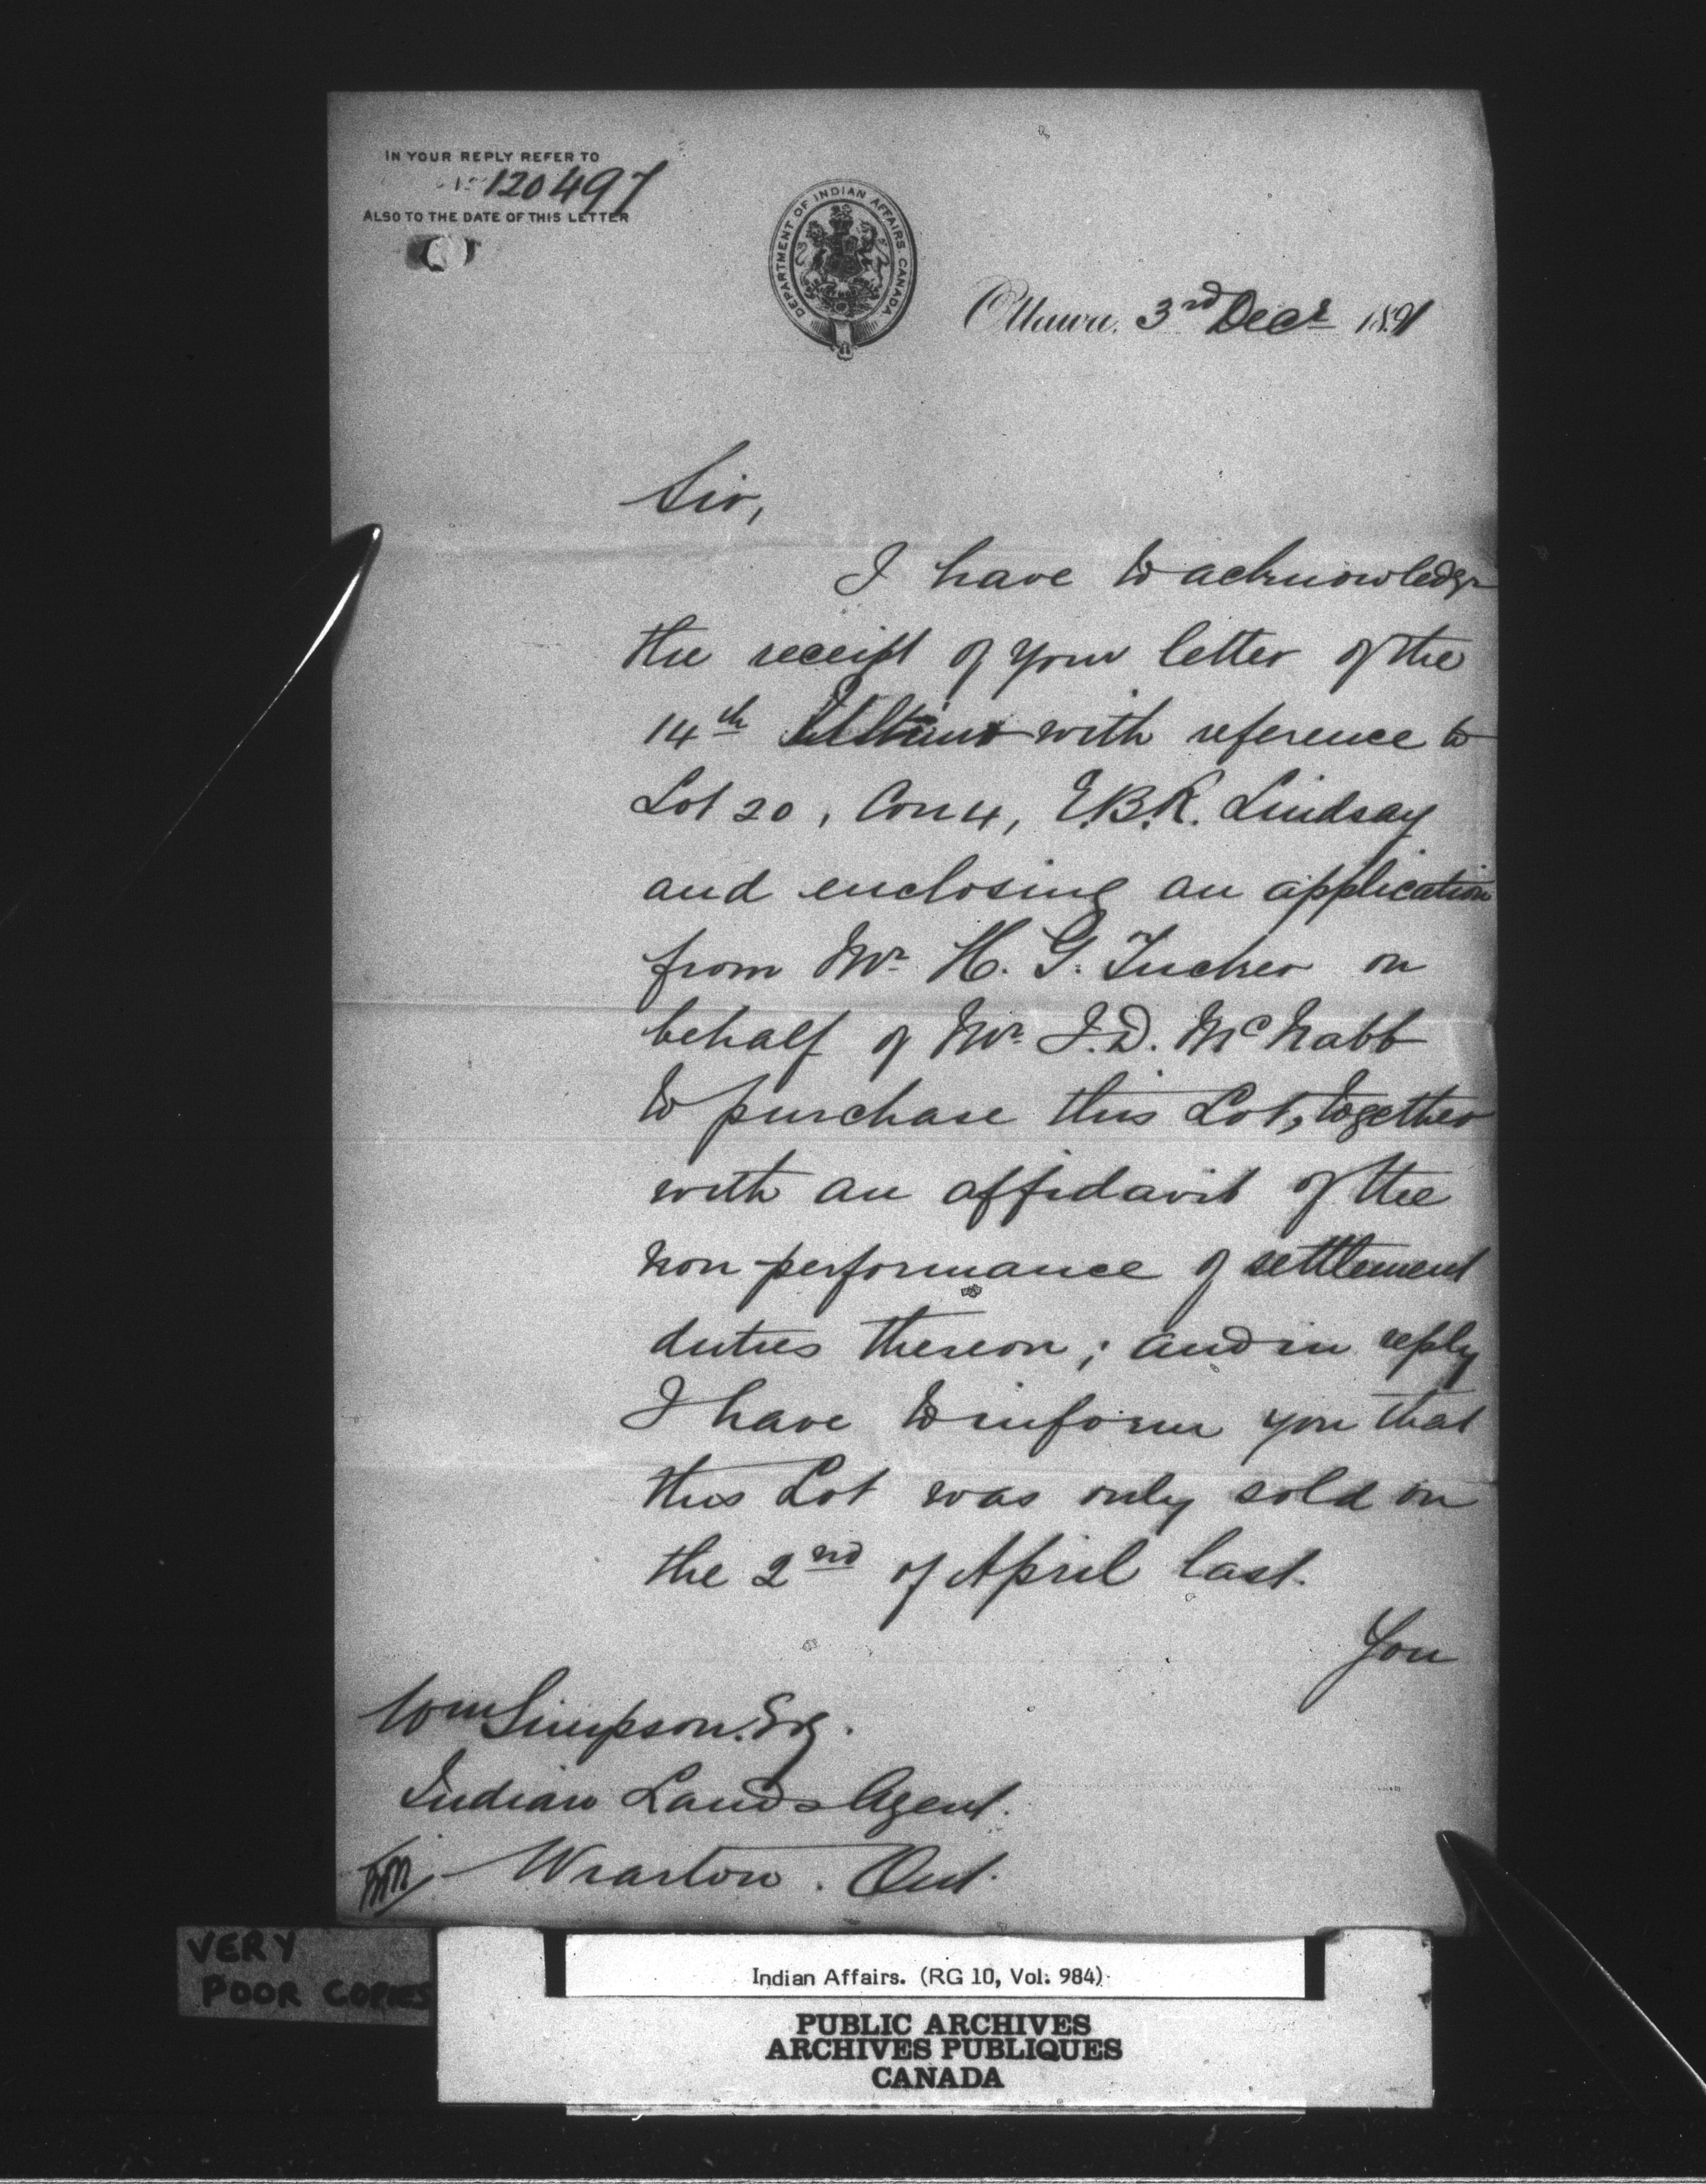 IN YOUR REPLY REFER TO
No 120497
ALSO TO THE DATE OF THIS LETTER
DEPARTMENT OF INDIAN AFFAIRS. CANADA
Ottawa, 3rd Decr 1891
Sir,
I have to acknowledge
the receipt of your letter of the
14th Ultimo with reference to
Lot 20, Con 4, E.B.R. Lindsay
and enclosing an application
from Mr. H. G. Tucker on
behalf of Mr. J.D. McNabb
to purchase this Lot, together
with an affidavit of the
non-performance of settlement
duties thereon; and in reply
I have to inform you that
this Lot was only sold on
the 2nd of April last.
You
Wm Simpson. Esq.
Indian Lands Agent.
Wiarton. Ont.
VERY
POOR COPIES
Indian Affairs. (RG 10, Vol. 984)
PUBLIC ARCHIVES
ARCHIVES PUBLIQUES
CANADA